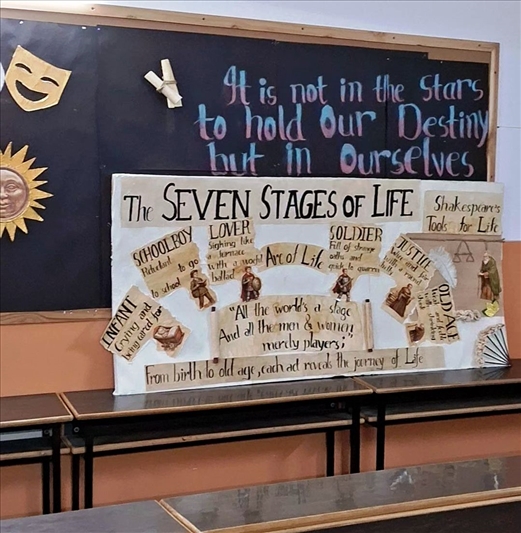 It is not in the Stars
to hold Our Destiny
but in Ourselves
The SEVEN STAGES OF LIFE
Shakespeare's
Tools for Life
INFANT
Crying and
being cared for
SCHOOLBOY
Reluctant
to go
to school
LOVER
Sighing like
a furnace
with a woeful
ballad
Arc of Life
SOLDIER
Full of strange
oaths and
quick to quarrel
JUSTICE
OLD AGE
"All the world's a stage
And all the men & women
merely players;"
From birth to old age, each act reveals the journey of Life